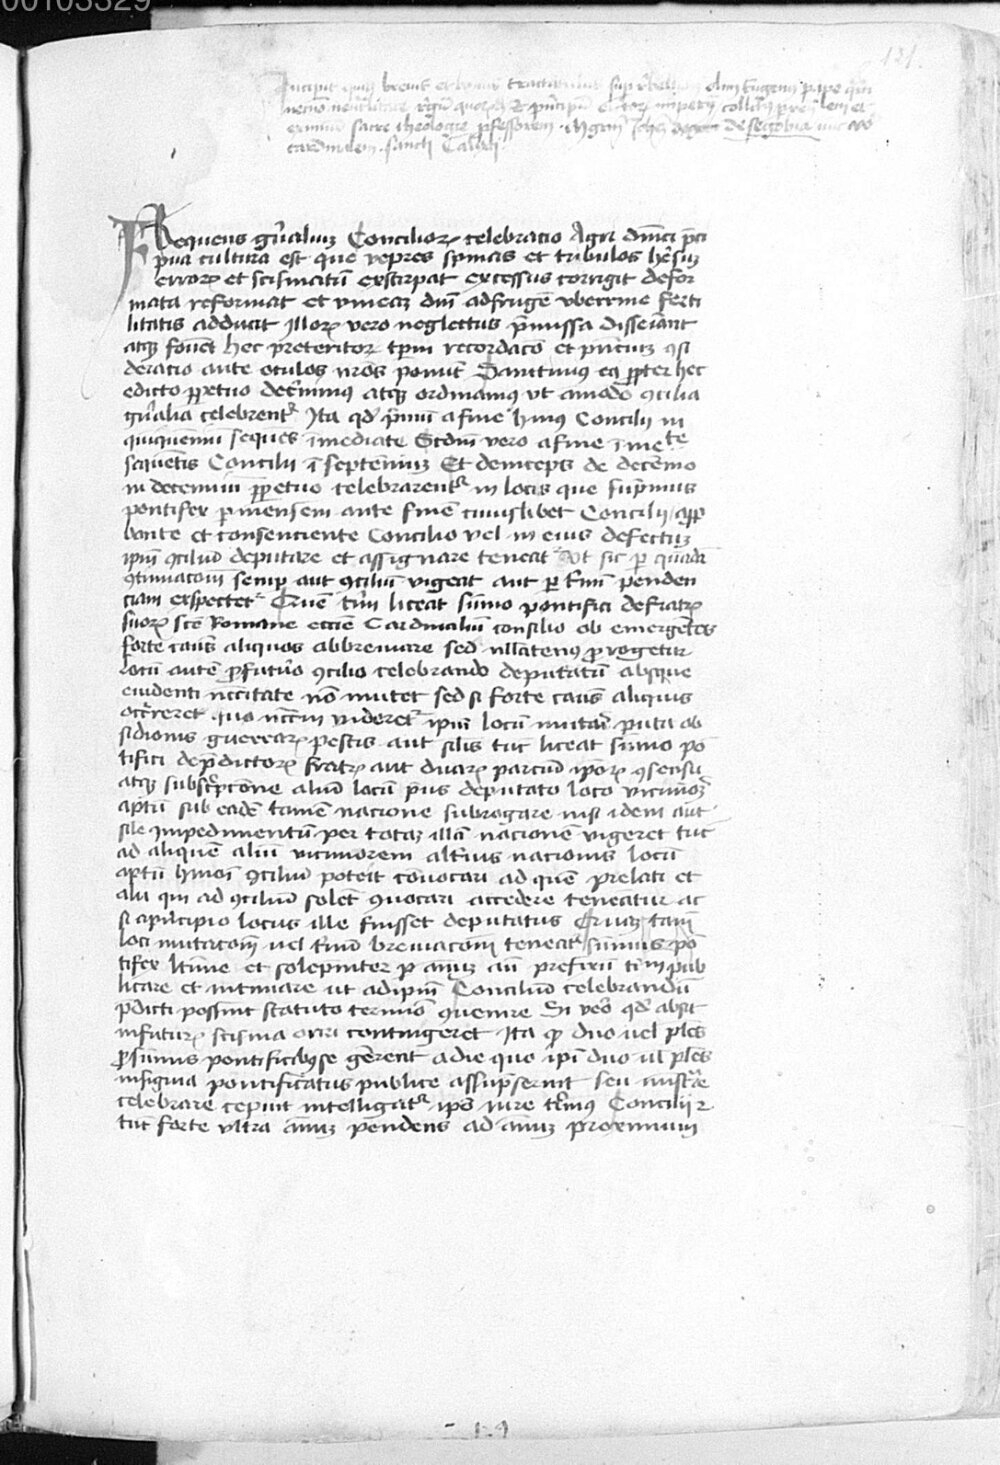 00103329
121.
Incipit brevis et bonus tractatulus sup Eugenij pape
necnon neutralitate regum quorumdam et principum electorum imperij collectus per
eximium sacre theologie professorem Mgrm Johem de Segobia nunc
cardinalem sancti Calixti
Frequens gnalium Concilior celebratio Agri dnici preci
pua cultura est que vepres spinas et tribulos heresum
error et scismatum exstirpat excessus corrigit defor
mata reformat et vineam dni ad frugem vberrime ferti
litatis adducit Illor vero neglectus pmissa disseminat
atq fovet hec preteritor tpm recordaco et pncium 9si
deratio ante oculos nros ponunt Sanctimus ea ppter hec
edicto ppetuo decernimus atq ordinamus vt amodo 9cilia
gnalia celebrent Ita qd primum a fine huius Concilij in
quinquennium sequens imediate Scdm vero a fine imediate
sequentis Concilij i septennium Et deinceps de decennio
in decennium ppetuo celebrarent in locis que supmus
pontifex p mensem ante finem cuiuslibet Concilij app
bante et consenciente Concilio vel in eius defectum
ipm 9cilium deputare et assignare teneat Vt sic p quandam
9tinuacom semp aut 9cilium vigeat aut p tmini penden
ciam expectet Quem tmi liceat sumo pontifici de fratr
suor sce Romane eccie Cardinalium consilio ob emergentes
forte casus aliquos abbreviare sed nllatenus prorogetur
Locum autem p futuro 9cilio celebrando deputatum absque
euidenti nccitate non mutet sed si forte casus aliquis
occurreret quo nccm videret ipm locum mutari puta ob
sidionis guerrar pestis aut silis tuc liceat sumo po
tifici de pdictor fratr aut duar parcium ipor 9sensu
atq subscripcone alium locum prius deputato loco viciniore
aptum sub eadem tamen nacione subrogare nisi idem aut
sile impedimentum per totam illam nacionem vigeret tuc
ad aliquem alium viciniorem alterius nacionis locum
aptum hmoi 9cilium poterit convocari ad quem prelati et
alii qui ad 9cilium solent 9vocari accedere teneantur ac
si a principio locus ille fuisset deputatus Quam tam
loci mutacom vel tmini breviacom teneat sumus po
tifex ltime et solepniter p annum an prefixum tmi pub
licare et intimare ut ad ipm Concilium celebrandum
pdicti possint statuto termino 9venire Si vero qd absit
in futur scisma oriri contingeret Ita q duo vel ples
p sumis pontificibus se gerent a die quo ipi duo vl ples
insignia pontificatus publice assumpserint seu ministrare
celebrare ceperint intelligat ipo iure terminus Concilii
tuc forte vltra annum pendens ad annum proximum